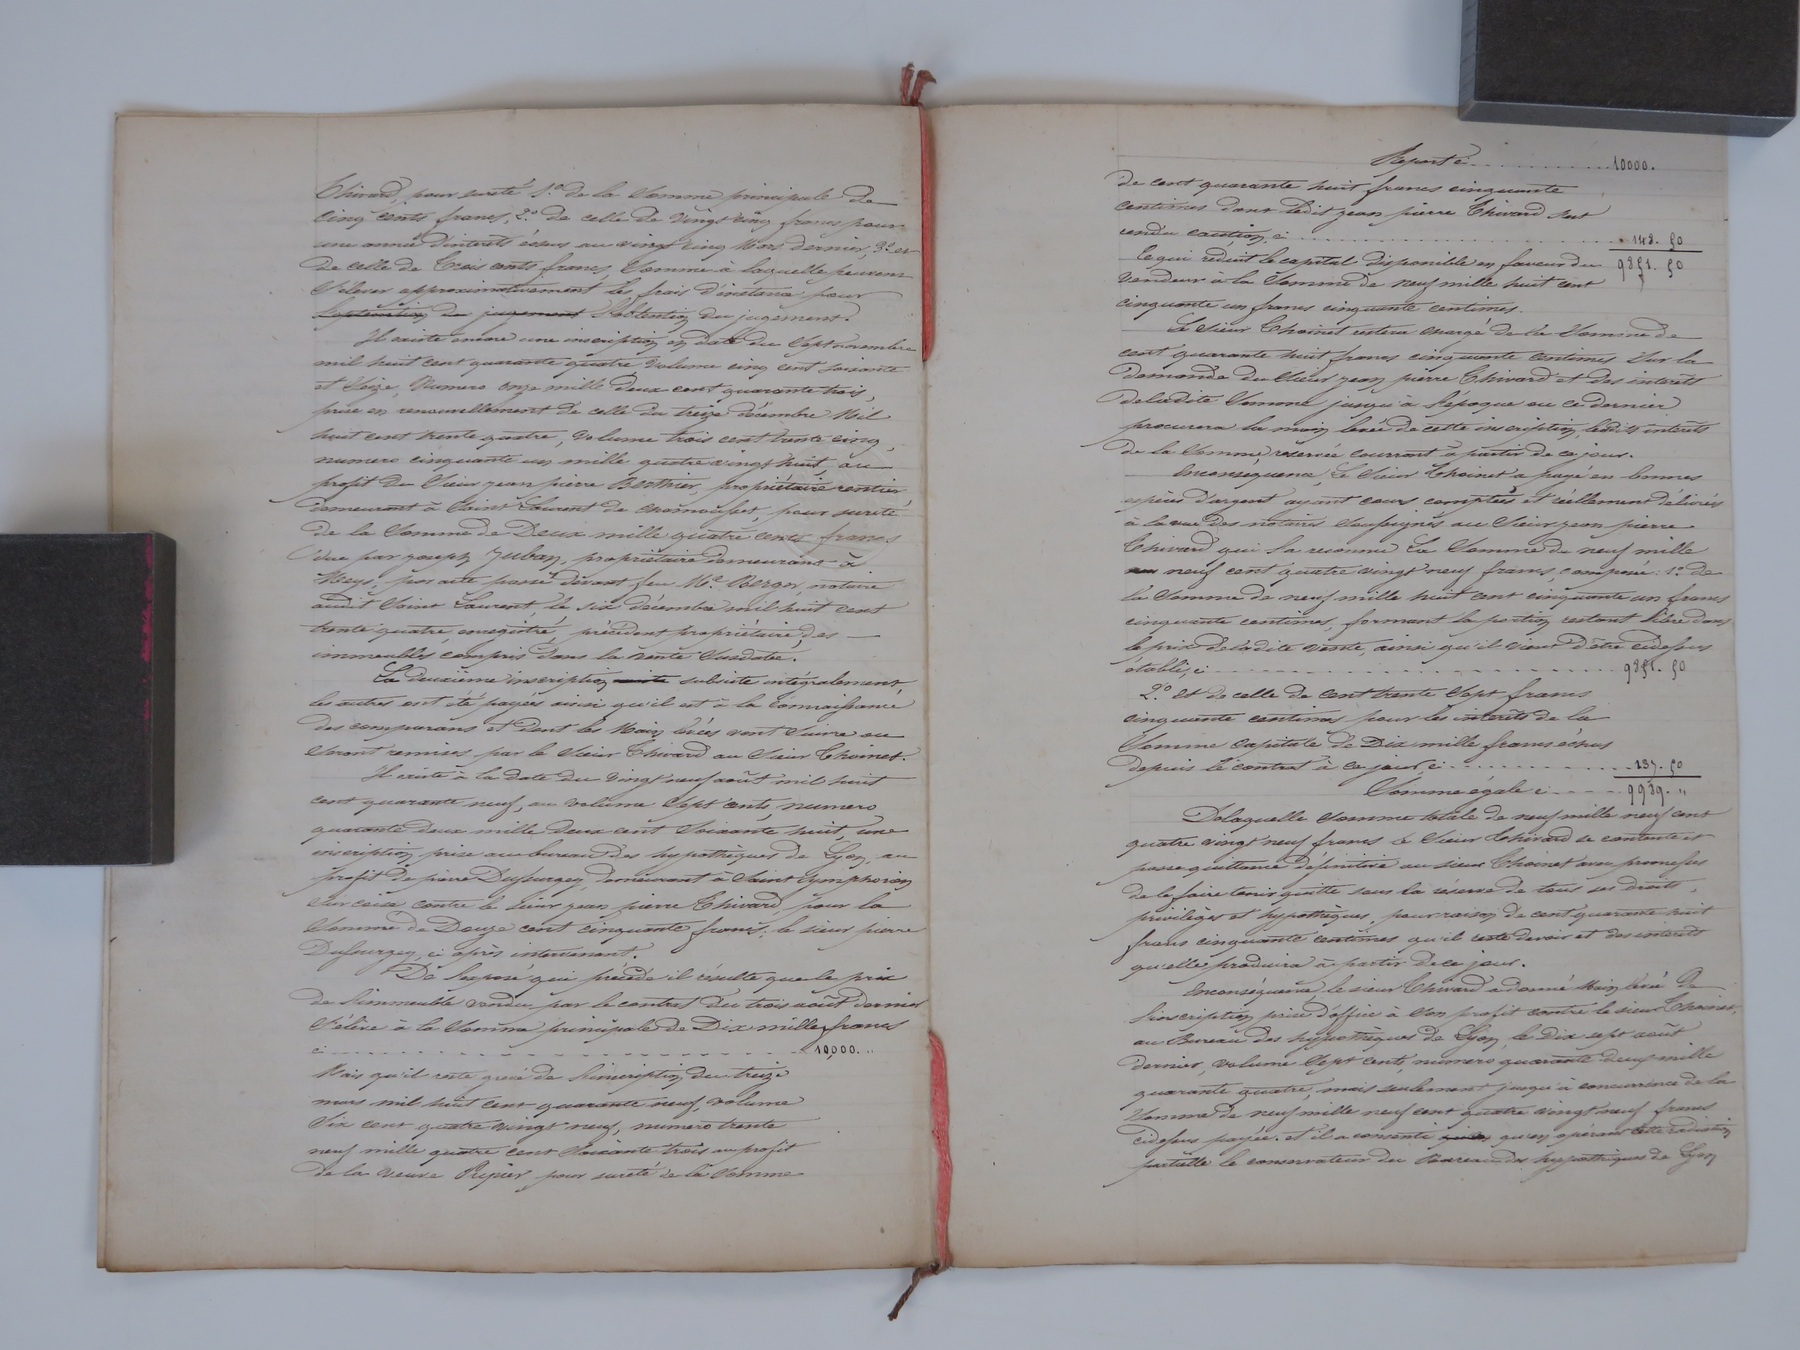 Chivard, pour sureté 1.º de la Somme principale de
Cinq cents francs, 2.º de celle de vingt cinq francs pour
une année d'interets échus au vingt cinq Mars dernier, 3.º et
de celle de Trois cents francs, Somme à laquelle peuvent
S'élever approximativement les frais d'instance pour
l'obtention du jugement.
Il existe encore une inscription en date du Sept novembre
mil huit cent quarante quatre volume cinq cent soixante
et Seize, Numero onze mille deux cent quarante trois,
prise en renouvellement de celle du treize décembre Mil
huit cent trente quatre, volume trois cent trente cinq,
numero cinquante un mille quatre vingt huit, au
profit du Sieur jean pierre Berthier, propriétaire rentier
demeurant à Saint Laurent de chamousset, pour sureté
de la Somme de Deux mille quatre cents francs
due par joseph Juban, propriétaire demeurant à
Meys, par acte passé devant feu M.e Berger, notaire
audit Saint Laurent, le six décembre mil huit cent
trente quatre enregistré, précédent propriétaire, des
immeubles compris dans la vente Susdatée.
La deuxième inscription subsiste intégralement,
les autres ont été payées ainsi qu'il est à la connaissance
des comparans et dont les Main levées vont Suivre ou
Seront remises par le Sieur Chivard au Sieur Thoinet.
Il existe à la date du vingt neuf août mil huit
cent quarante neuf, au volume Sept cents, numero
quarante deux mille deux cent Soixante huit, une
inscription prise au bureau des hypothèques de Lyon, au
profit de pierre Dussurgey, demeurant à Saint Symphorien
Sur coise contre le Sieur jean pierre Chivard, pour la
Somme de Douze cent cinquante francs; le sieur pierre
Dussurgey, ci après intervenant.
De l'exposé qui précède il résulte que le prix
de l'immeuble vendu par le contrat du trois août dernier
S'élève à la Somme principale de Dix mille francs
ci 10,000. "
Mais qu'il reste grevé de l'inscription du treize
mars mil huit cent quarante neuf, volume
Six cent quatre vingt neuf, numero trente
neuf mille quatre cent Soixante trois au profit
de la veuve pour sureté de la Somme
Report ci 10000.
de cent quarante huit francs cinquante
centimes dont ledit jean pierre Chivard s'est
rendu caution, ci 148. 50
Ce qui réduit le capital disponible en faveur du 9851. 50
vendeur à la Somme de neuf mille huit cent
cinquante un francs cinquante centimes.
Le Sieur Thoinet restera chargé de la Somme de
cent quarante huit francs cinquante centimes Sur la
demande du Sieur jean pierre Chivard et des interets
de ladite Somme jusqu'à l'époque ou ce dernier
procurera la main levée de cette inscription, lesdits interets
de la Somme réservée courront à partir de ce jour.
En conséquence, Le Sieur Thoinet a payé en bonnes
espèces d'argent ayant cours comptées et réellement délivrées
à la vue des notaires Soussignés au Sieur jean pierre
Chivard qui l'a reconnu La Somme de neuf mille
neuf cent quatre vingt neuf francs, composée: 1.º de
la Somme de neuf mille huit cent cinquante un francs
cinquante centimes, formant la portion restant libre dans
le prix de ladite vente, ainsi qu'il vient d'être cidessus
établi, ci 9851. 50
2.º et de celle de cent trente Sept francs
cinquante centimes pour les interets de la
Somme capitale de Dix mille francs échus
depuis le contrat à ce jour, ci 137. 50
Somme égale ci 9989. "
De laquelle Somme totale de neuf mille neuf cent
quatre vingt neuf francs le Sieur Chivard se contente et
passe quittance définitive au sieur Thoinet avec promesses
de le faire tenir quitte sous la réserve de tous ses droits,
privilèges et hypothèques, pour raison de cent quarante huit
francs cinquante centimes qu'il reste devoir et des interets
qu'elle produira à partir de ce jour.
En conséquence, le sieur Chivard a donné Main levée De
l'inscription prise d'office à Son profit contre le sieur Thoinet,
au Bureau des hypothèques de Lyon, le Dix sept août
dernier, volume Sept cents, numero quarante deux mille
quarante quatre, mais seulement jusqu'à concurrence de la
Somme de neuf mille neuf cent quatre vingt neuf francs
cidessus payée. et il a consenti qu'en opérant cette radiation
partielle le conservateur du Bureau des hypothèques de Lyon